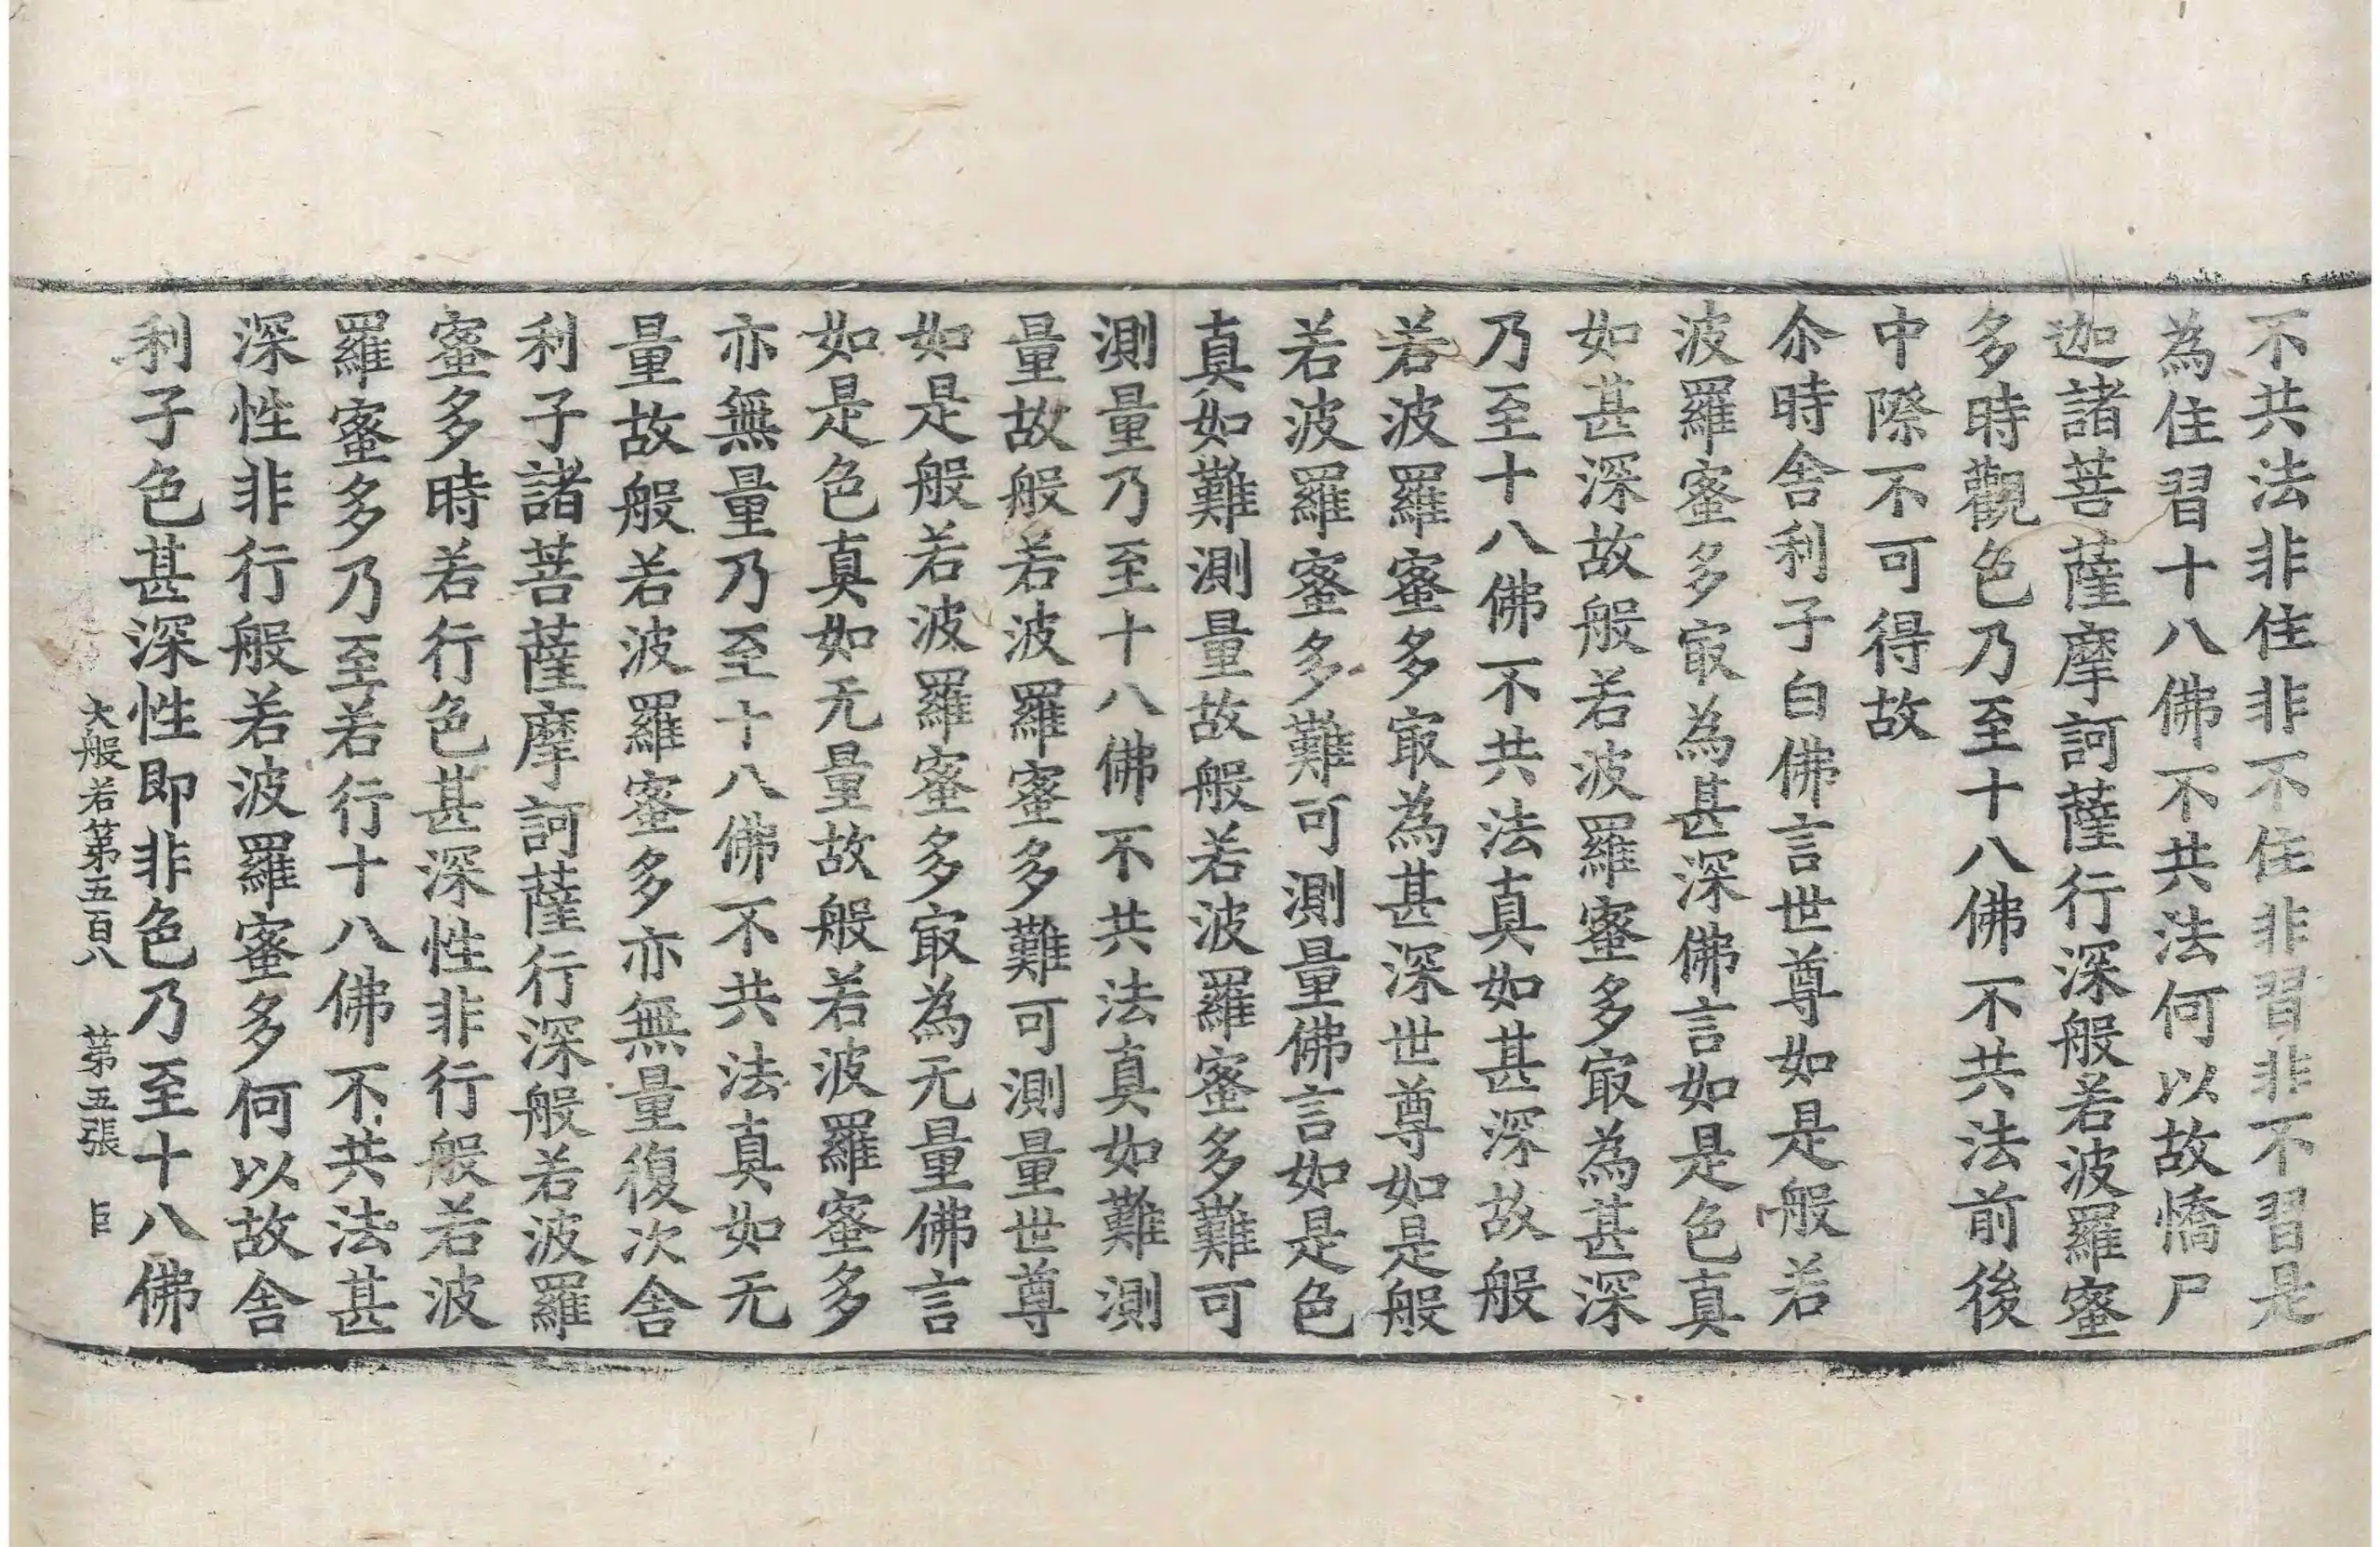 不共法非住非不住非習非不習是
為住習十八佛不共法何以故憍尸
迦諸菩薩摩訶薩行深般若波羅蜜
多時觀色乃至十八佛不共法前後
中際不可得故
尒時舍利子白佛言世尊如是般若
波羅蜜多㝡為甚深佛言如是色真
如甚深故般若波羅蜜多㝡為甚深
乃至十八佛不共法真如甚深故般
若波羅蜜多㝡為甚深世尊如是般
若波羅蜜多難可測量佛言如是色
真如難測量故般若波羅蜜多難可
測量乃至十八佛不共法真如難測
量故般若波羅蜜多難可測量世尊
如是般若波羅蜜多㝡為无量佛言
如是色真如无量故般若波羅蜜多
亦無量乃至十八佛不共法真如无
量故般若波羅蜜多亦無量復次舍
利子諸菩薩摩訶薩行深般若波羅
蜜多時若行色甚深性非行般若波
羅蜜多乃至若行十八佛不共法甚
深性非行般若波羅蜜多何以故舍
利子色甚深性即非色乃至十八佛
大般若第五百八 第五張 臣